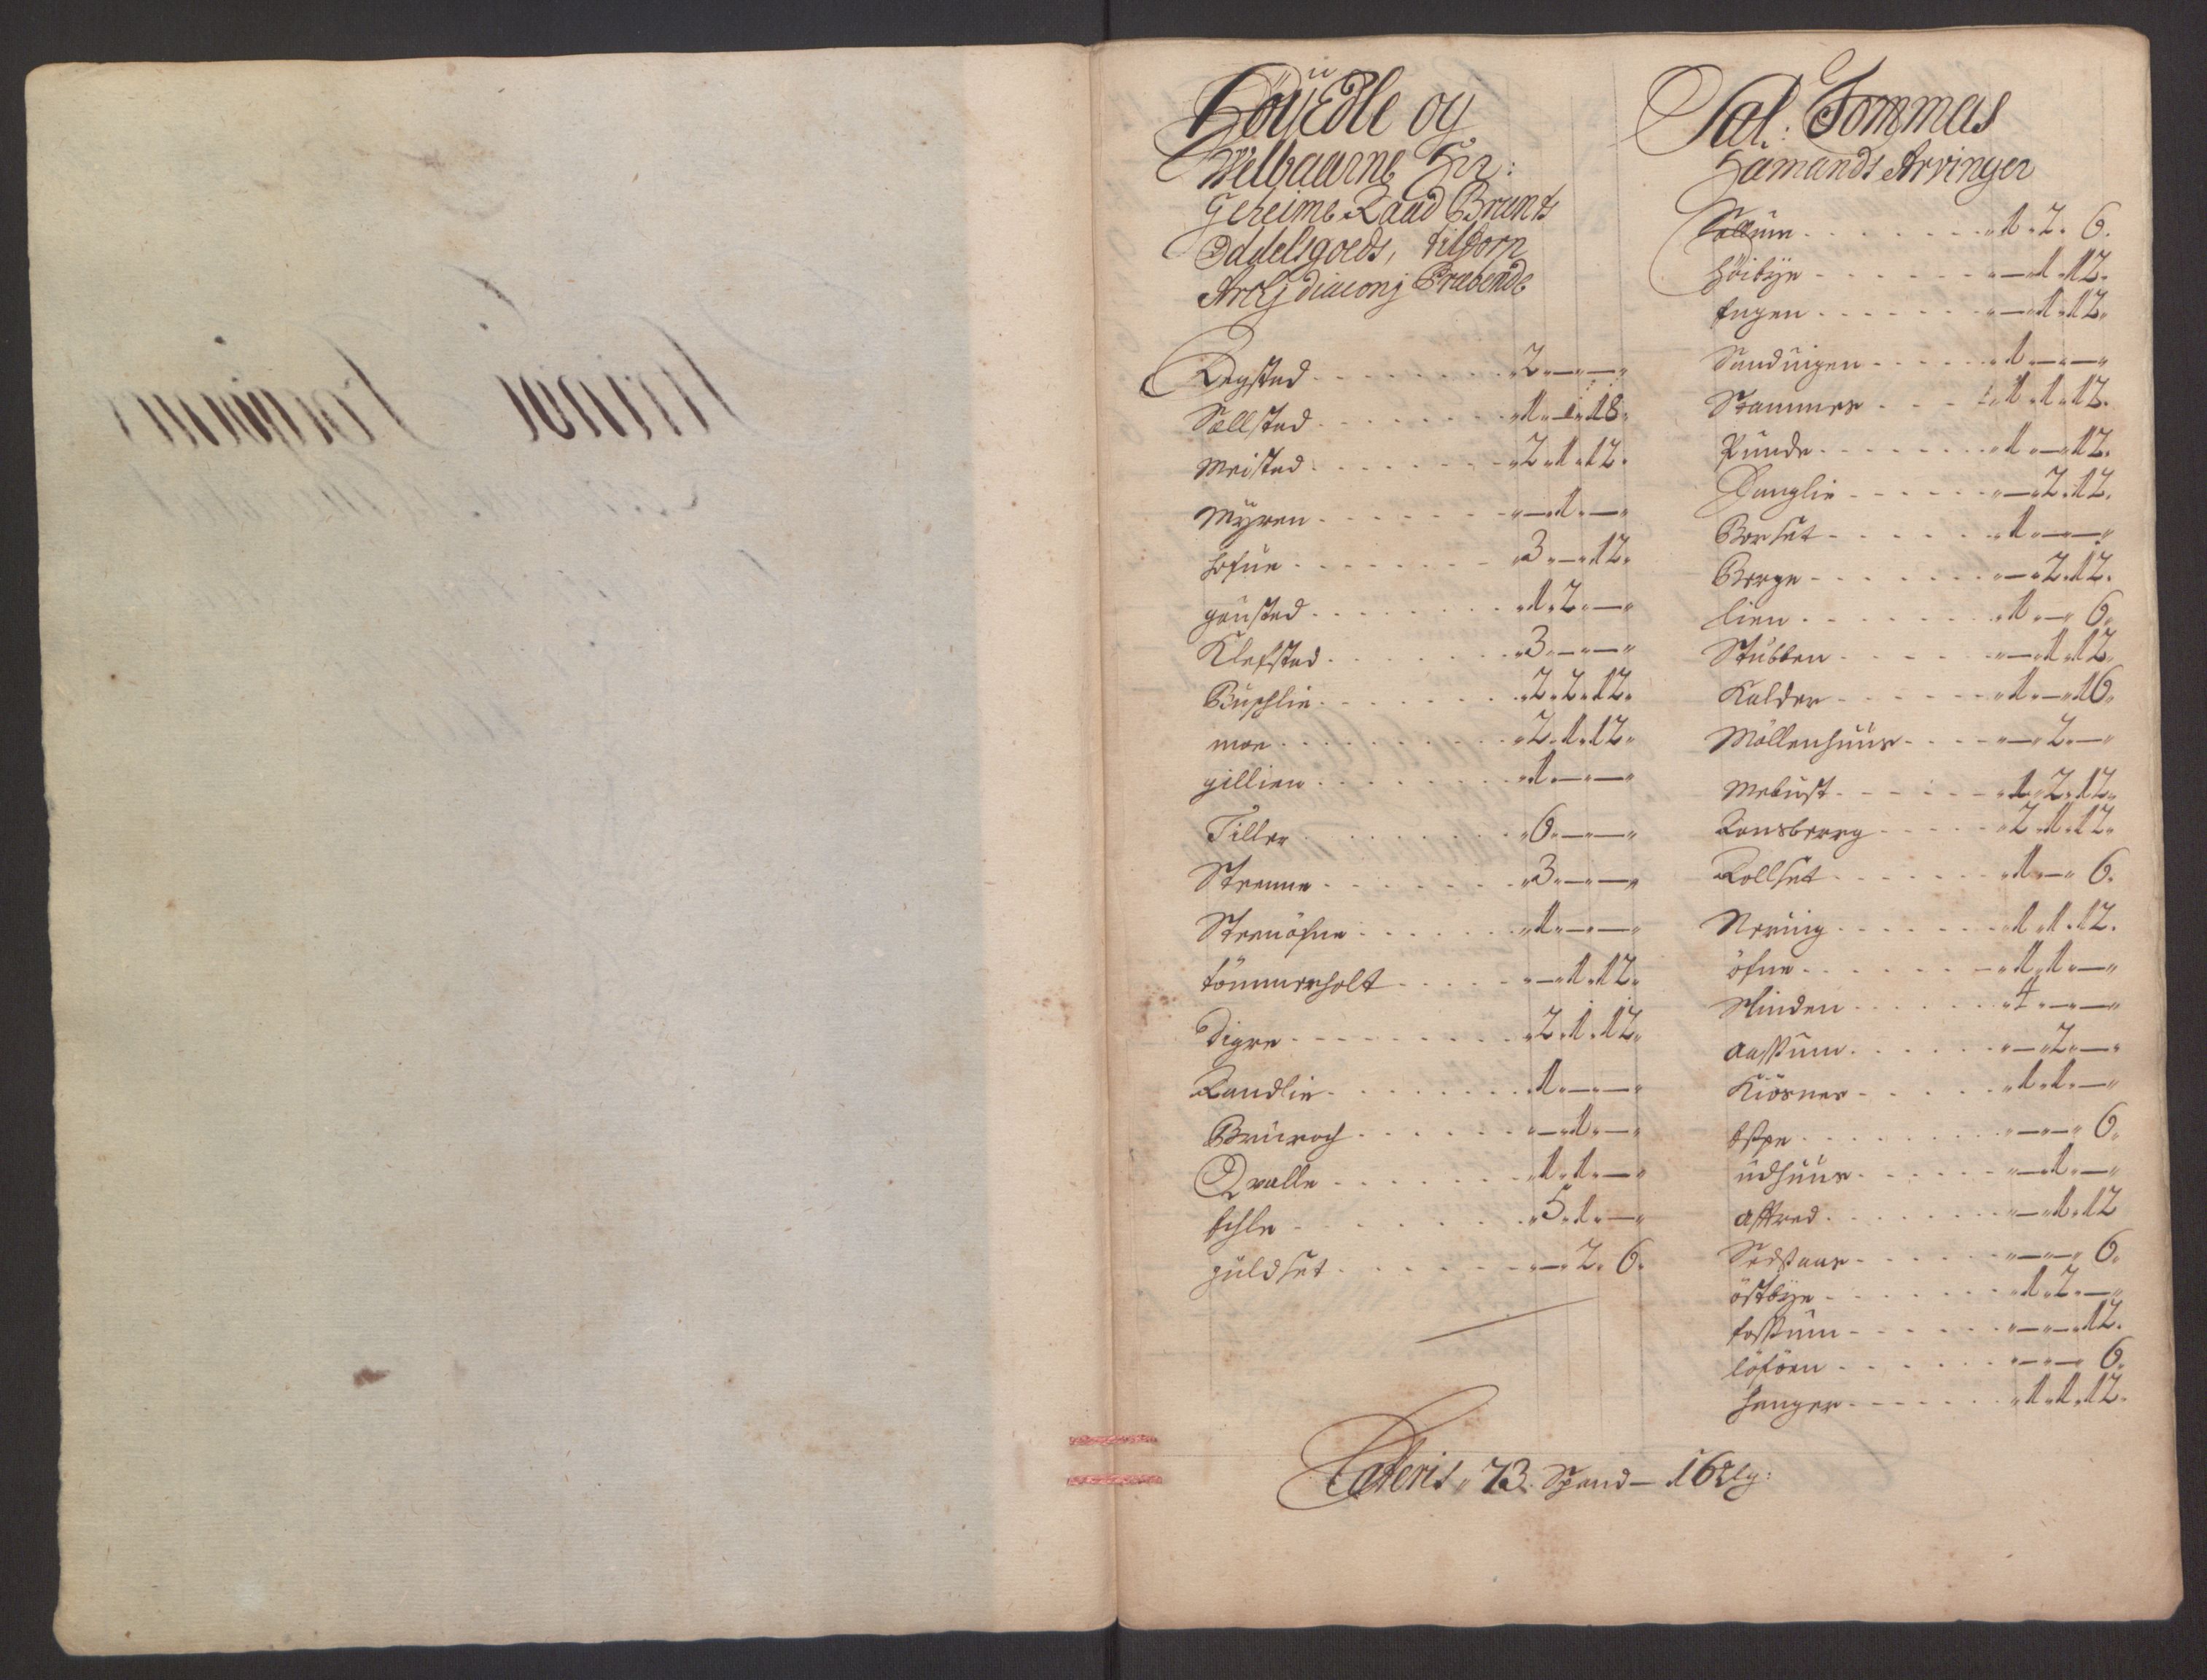 Höÿedle og
Welbaarne Hr:
Geheime Raad Brants
Oddelsgoeds, tilforn
Archj diaconj Præbende
Regstad - - - 2 — —
Sællstad - - - 1 1 18
Meistad - - - 2 1 12
Myren - - - — 1 —
hofue - - - 3 — 12
gousted - - - 1 2 —
Klefstad - - - 3 — —
Buschlie - - - 2 2 12
moe - - - 2 1 12
gillien - - - 1 — —
Tiller - - - 6 — —
Strenne - - - 3 — —
Strenöfne - - - 1 — —
tömmerholt - - - — 1 12
Digre - - - 2 1 12
Randlie - - - 1 — —
Bruroch - - - — 1 —
Qvalle - - - 1 1 —
Eschle - - - 5 1 —
guldset - - - — 2 6
Sal: Tommas
Hamands Arvinger
Sallum - - - 1 2 6
höibye - - - — 1 12
Engen - - - — 1 12
Sanduigen - - - 1 — —
Stammer - - - 1 1 12
Runde - - - 1 — 12
Danglie - - - — 2 12
Borset - - - 1 — —
Berge - - - — 2 12
lien - - - 1 — 6
Stubben - - - — 1 12
Kalder - - - 1 — 16
Möllenhuus - - - — 2 —
Mebust - - - 1 2 12
Ronsberrg - - - 2 1 12
Rollset - - - 1 — 6
Neruig - - - 1 1 12
öfne - - - 1 1 —
Minden - - - 1 — —
aassum - - - — 2 —
Kiösnes - - - 1 1 —
Espe - - - — — 6
udhuus - - - — 1 —
astred - - - — 1 12
Sedstaas - - - — — 6
östbye - - - 1 2 —
fossum - - - — — 12
löföen - - - — — 6
hanger - - - 1 1 12
Lateris 73 Spand — 16 Mg: